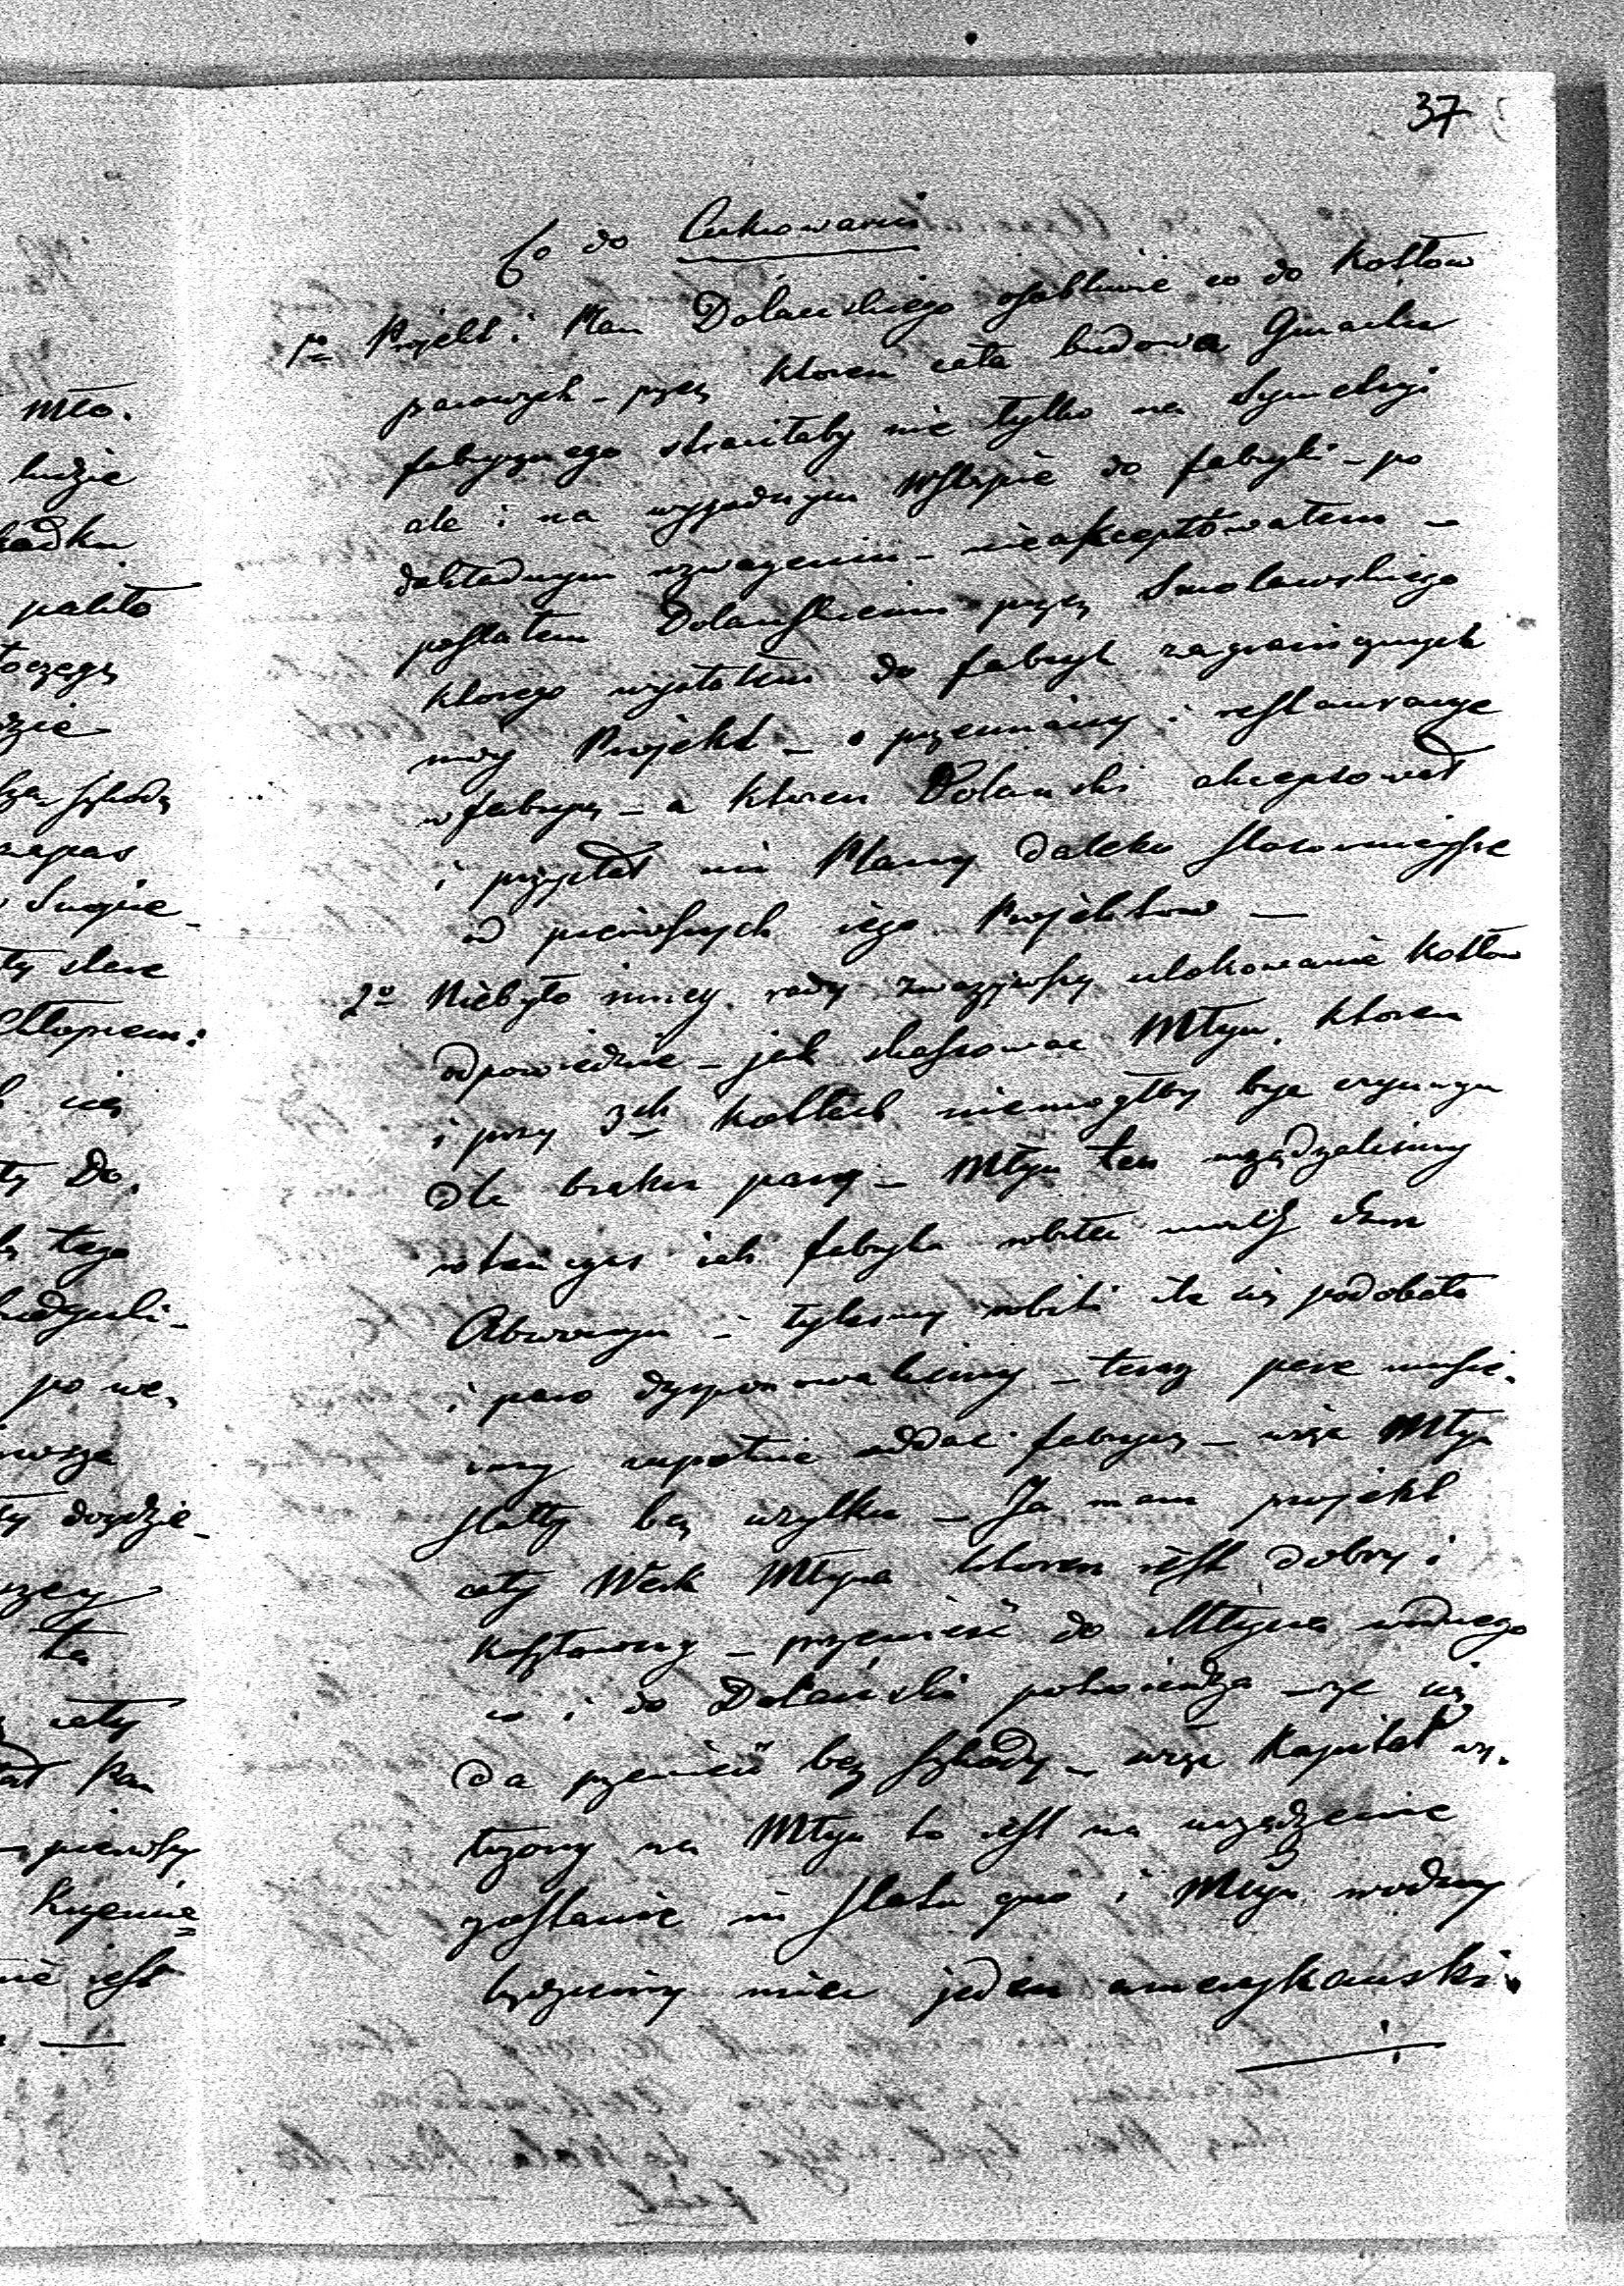 37
Co do Cukrowarni
1o Projekt i Plan Dolańskiego osobliwie co do kotłow
parowych – przez ktoren cała budowa Gmachu
fabrycznego straciłaby nie tylko na Symetryi
ale i na wygodnym Wstępie do fabryki – po
dokładnym rozwazeniu – nieakceptowałem –
posłałem Dolańskiemu przez Smolawskiego
ktorego wysłałem do fabryk zagranicznych
moy Projekt – o przemiany i restauracye
w fabryce – a ktoren Dolański akceptował
i przysłał mi Plany daleko stosownieysze
od pierwszych iego Projektow —
2o Niebyło inney rady zwazywszy ulokowanie kotłow
odpowiednie – jak skassowac Młyn, ktoren
i przy 3ch kotłach niemogłby byc czynnym
dla braku pary – Młyn ten urządzalismy
wtenczas iak fabryka robiła
i tylesmy robili ile się podobało
i parą dysponowalismy – teraz pare musie-
my zupełnie oddac fabryce – więc Młyn
stałby bez uzytku – Ja mam projekt
cały Werk Młyna ktoren iest dobry i
kosztowny – przenieść do Młyna wodnego
co i do Dolański potwierdza – ze się
da przenieść bez szkody – więc Kapitał wy-
łozony na Młyn to iest na urządzenie
zostanie in statu quo i Młyn wodny
będziemy mieli jeden amerykanski.
mło.
ludzie
paliło
Do.
tego
po we,
ta
cały
Pan
pierwszy
iest